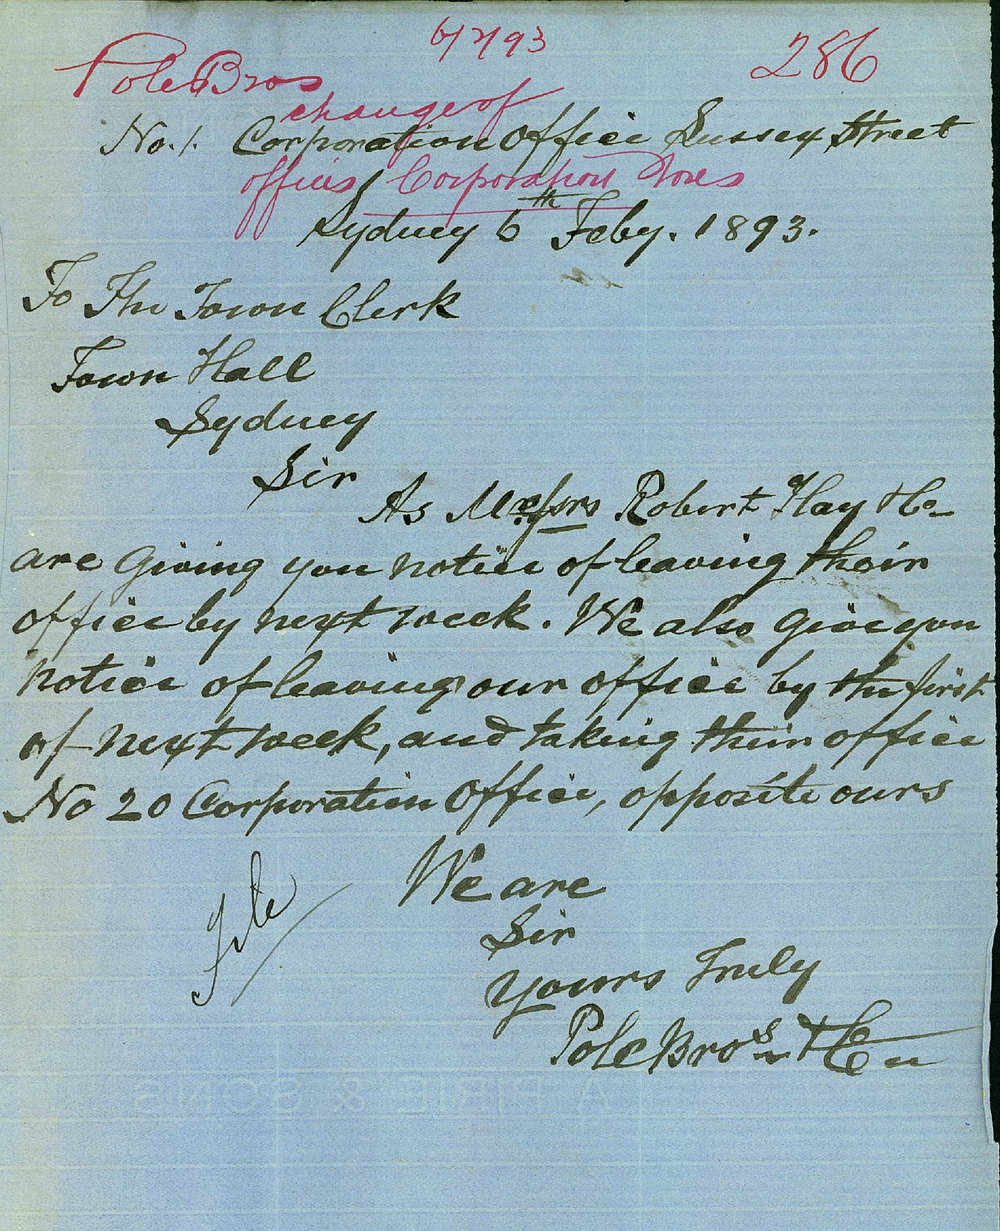 6/2/93
286
Pole Bros
change of
No. 1. Corporation Office Sussex Street
offices Corporation
Sydney 6th Feby. 1893.
To The Town Clerk
Town Hall
Sydney
Sir
As Messrs Robert Hay & Co
are giving you notice of leaving their
office by next week. We also give you
notice of leaving our office by the first
of next week, and taking their office
No 20 Corporation Office, opposite ours
File
We are
Sir
Yours Truly
Pole Bros & Co
A PIRIE & SONS